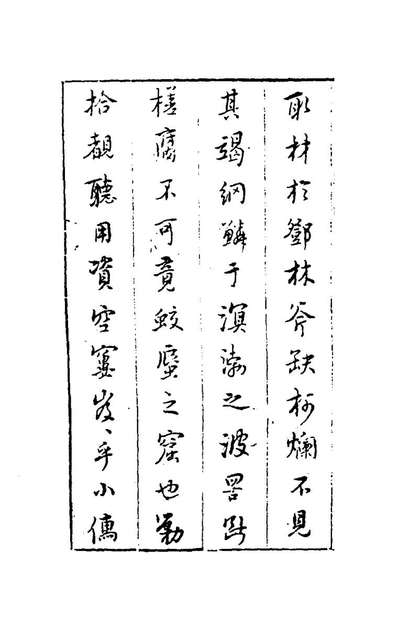 取材於鄧林斧缺柯爛不見
其竭網鱗于溟渤之波罟斷
槎腐不可竟蛟蜃之窟也
拾覩聽用資空窶岌、乎小